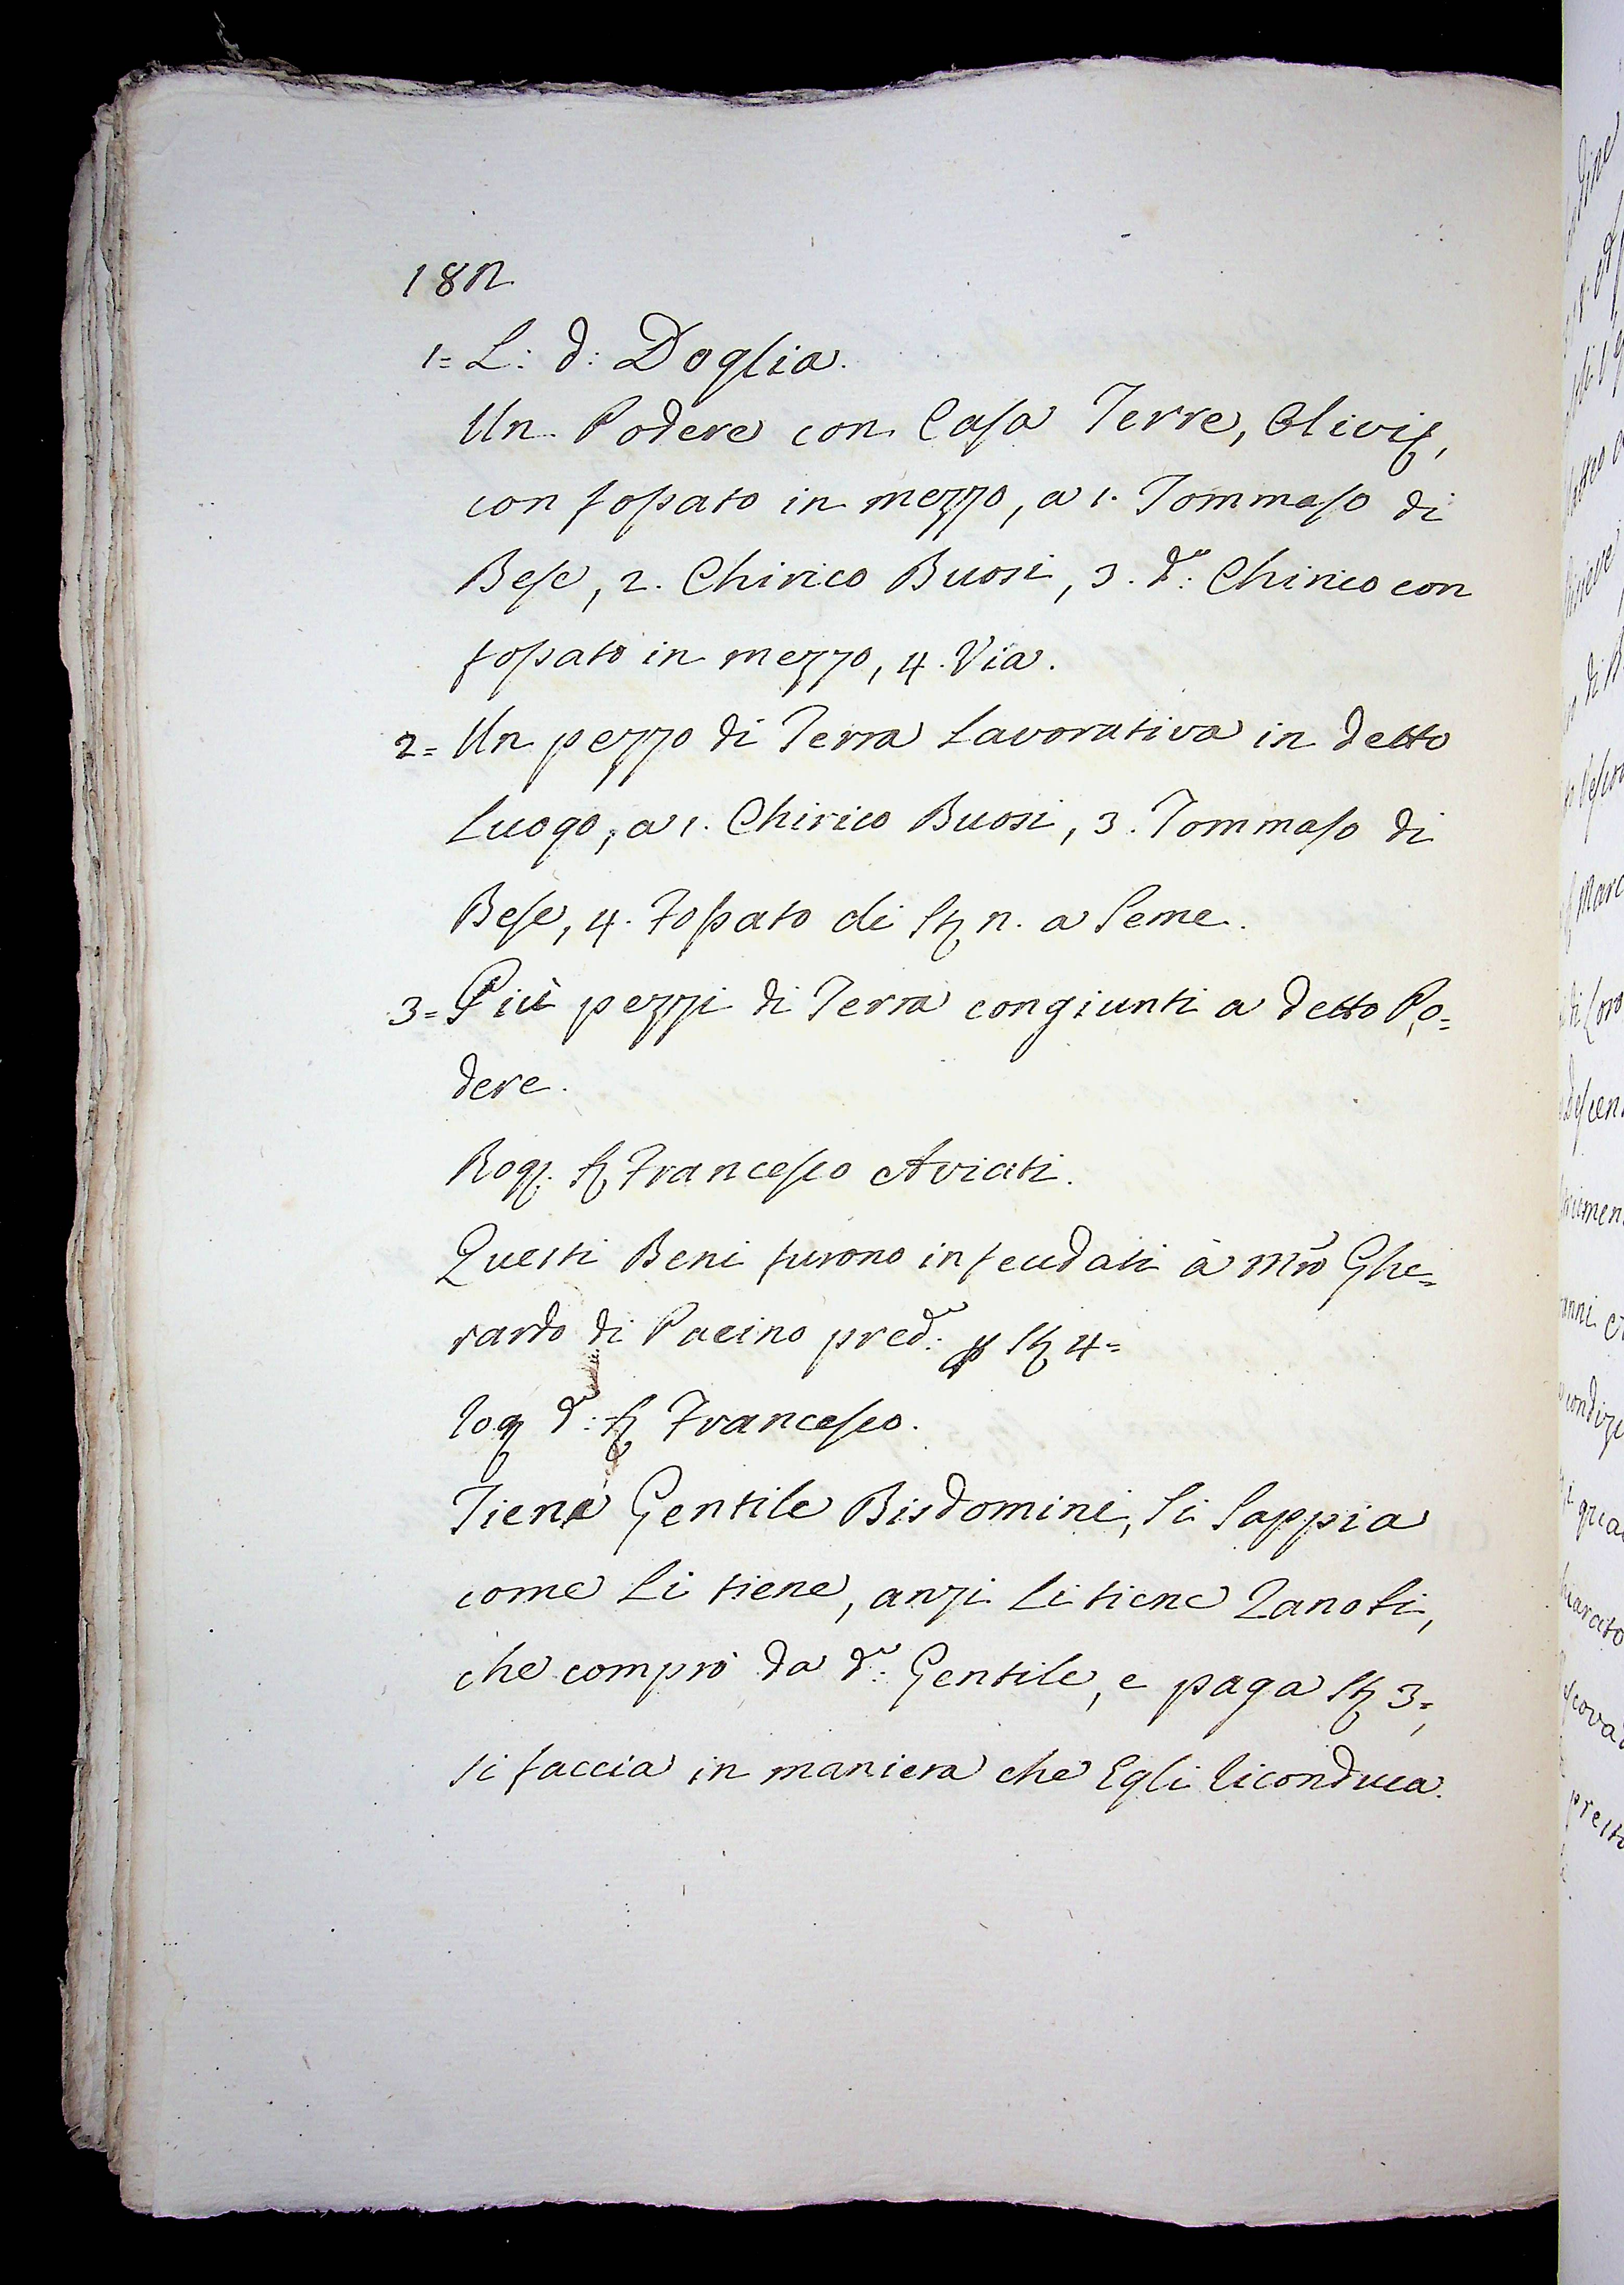 182
1= L: d: Doglia.
Un Podere con Casa Terre, Olivi &,
con fossato in mezzo, a 1. Tommaso di
Bese, 2. Chirico Buosi, 3. d.º Chirico con
fossato in mezzo, 4. Via.
2= Un pezzo di Terra Lavorativa in detto
Luogo, a 1. Chirico Buosi, 3. Tommaso di
Bese, 4. Fossato di St. n. a Seme.
3= Più pezzi di Terra congiunti a detto Po=
dere.
Rog. S. Francesco Aviati.
Questi Beni furono infeudati à Mro Ghe=
rardo di Pacino pred.º p St. 4=
Rog. d.º S. Francesco.
Tiene Gentile Bisdomini, Si Sappia
come Li tiene, anzi Li tiene Zanobi,
che comprò da d.º Gentile, e paga St. 3=,
si faccia in maniera che Egli Riconduca.